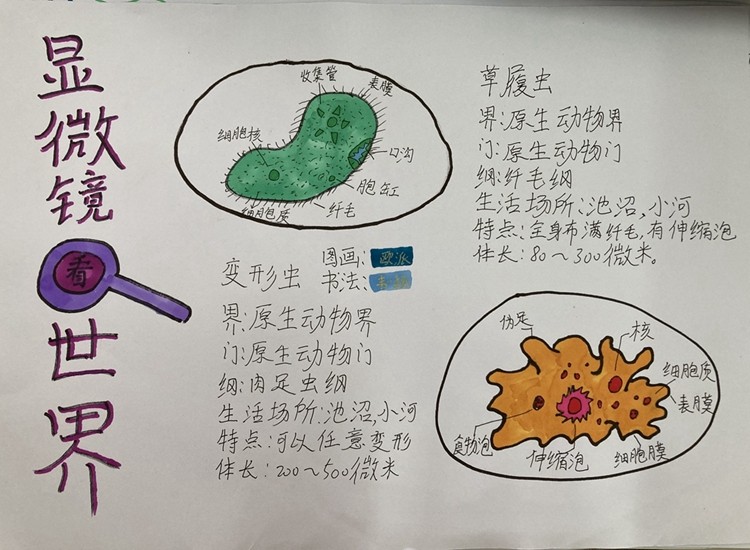 显微镜看世界
收集管
表膜
细胞核
口沟
胞肛
纤毛
细胞质
草履虫
界:原生动物界
门:原生动物门
纲:纤毛纲
生活场所:池沼,小河
特点:全身布满纤毛,有伸缩泡
体长:80～300微米。
图画:
书法:
变形虫
界:原生动物界
门:原生动物门
纲:肉足虫纲
生活场所:池沼,小河
特点:可以任意变形
体长:200～500微米
伪足
核
细胞质
表膜
细胞膜
伸缩泡
食物泡